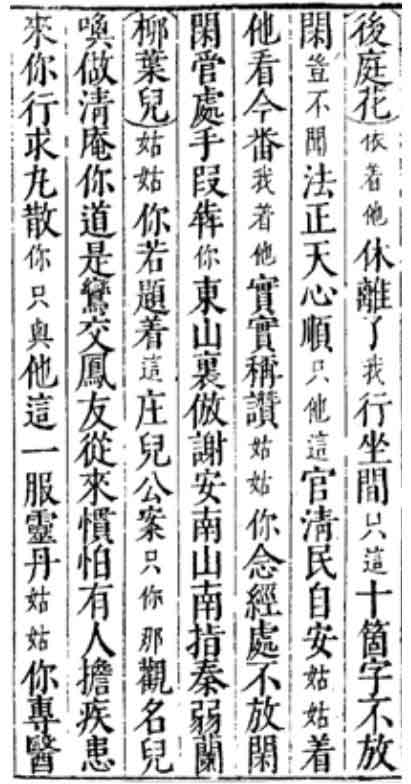 後庭花依着他休離了我行坐間只這十箇字不放
閑豈不聞法正天心順只他這官清民自安姑姑着
他看今番我着他實實稱讚姑姑你念經處不放閑
閑管處手叚你東山裏倣謝安南山南指秦弱蘭
柳葉兒姑姑你若題着這庄兒公案只你那觀名兒
喚做清庵你道是鸞交鳳友從來慣怕有人擔疾患
來你行求丸散你只與他這一服靈丹姑姑你專醫